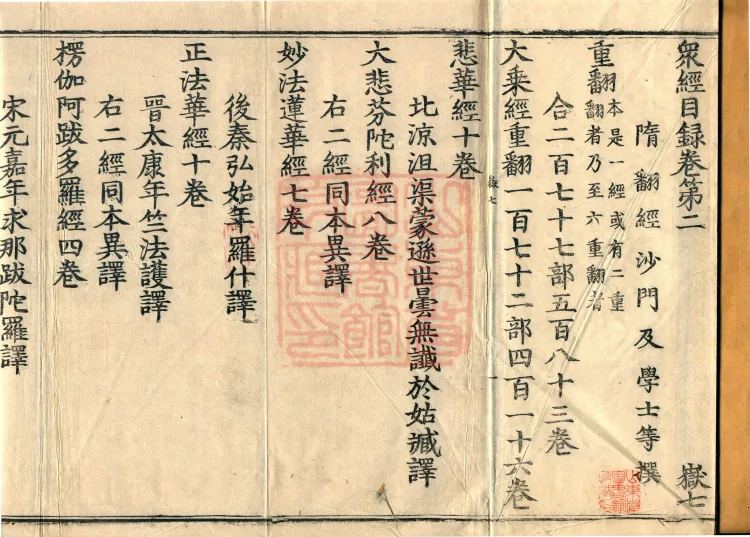 衆經目録卷第二 嶽七
隋翻經沙門及學士等撰
重翻 翻本是一經或有二重
翻者乃至六重翻者
合二百七十七部五百八十三卷
大乘經重翻一百七十二部四百一十六卷
嶽七 一
悲華經十卷
比涼沮渠蒙遜世曇無讖於姑臧譯
大悲芬陀利經八卷
右二經同本異譯
妙法蓮華經七卷
後秦弘始年羅什譯
正法華經十卷
晉太康年竺法護譯
右二經同本異譯
楞伽阿跋多羅經四卷
宋元嘉年求那跋陀羅譯